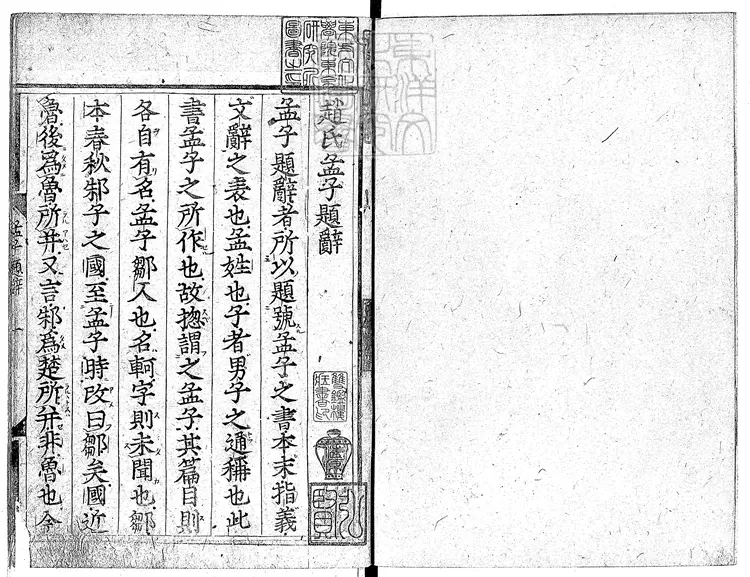 趙氏孟子題辭
孟子題辭者所以題號孟子之書本末指義
文辭之表也孟姓也子者男子之通稱也此
書孟子之所作也故揔謂之孟子其篇目則
各自有名孟子鄒人也名軻字則未聞也鄒
本春秋邾子之國至孟子時改曰鄒矣國近
魯後爲魯所并又言邾爲楚所并非魯也今
孟子題辭 一